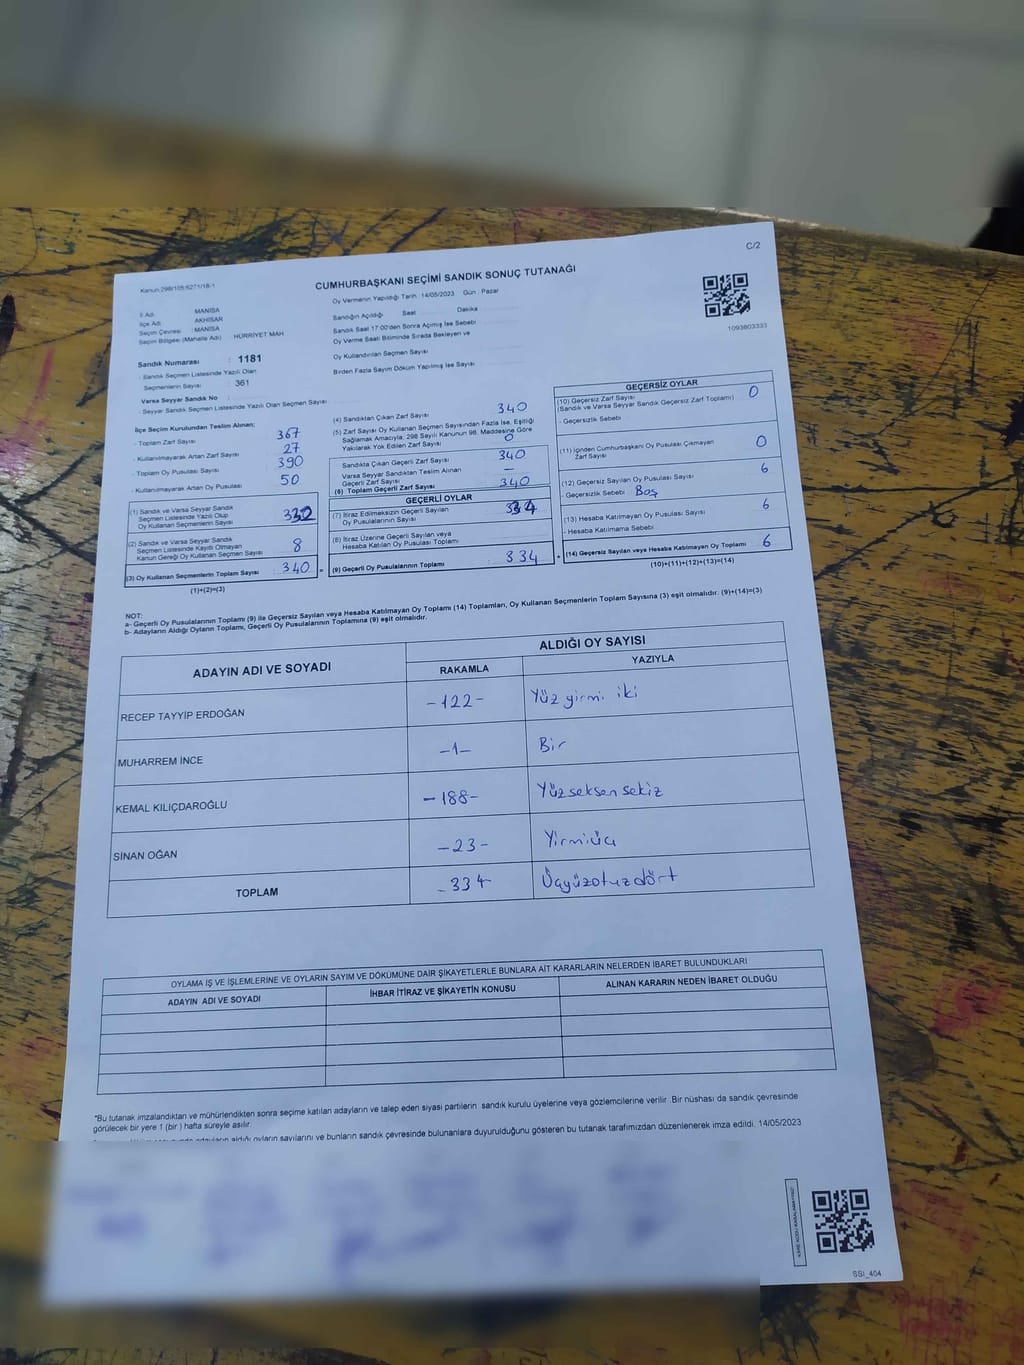 C/2
Kanun:298/105;6271/18-1
CUMHURBAŞKANI SEÇİMİ SANDIK SONUÇ TUTANAĞI
Oy Vermenin Yapıldığı Tarih : 14/05/2023 Gün : Pazar
1093803333
İl Adı : MANİSA
İlçe Adı : AKHİSAR
Seçim Çevresi : MANİSA
Seçim Bölgesi (Mahalle Adı) : HÜRRİYET MAH
Sandık Numarası : 1181
- Sandık Seçmen Listesinde Yazılı Olan
Seçmenlerin Sayısı : 361
Varsa Seyyar Sandık No :
- Seyyar Sandık Seçmen Listesinde Yazılı Olan Seçmen Sayısı
Sandığın Açıldığı Saat Dakika
Sandık Saat 17.00'den Sonra Açılmış İse Sebebi
Oy Verme Saati Bitiminde Sırada Bekleyen ve
Oy Kullandırılan Seçmen Sayısı
Birden Fazla Sayım Döküm Yapılmış İse Sayısı
İlçe Seçim Kurulundan Teslim Alınan;
- Toplam Zarf Sayısı 367
- Kullanılmayarak Artan Zarf Sayısı 27
- Toplam Oy Pusulası Sayısı 390
- Kullanılmayarak Artan Oy Pusulası 50
(1) Sandık ve Varsa Seyyar Sandık
Seçmen Listesinde Yazılı Olup
Oy Kullanan Seçmenlerin Sayısı 332
(2) Sandık ve Varsa Seyyar Sandık
Seçmen Listesinde Kayıtlı Olmayan
Kanun Gereği Oy Kullanan Seçmen Sayısı 8
(3) Oy Kullanan Seçmenlerin Toplam Sayısı 340 =
(1)+(2)=(3)
(4) Sandıktan Çıkan Zarf Sayısı 340
(5) Zarf Sayısı Oy Kullanan Seçmen Sayısından Fazla İse, Eşitliği
Sağlamak Amacıyla; 298 Sayılı Kanunun 98. Maddesine Göre
Yakılarak Yok Edilen Zarf Sayısı 0
Sandıkta Çıkan Geçerli Zarf Sayısı 340
Varsa Seyyar Sandıktan Teslim Alınan
Geçerli Zarf Sayısı –
(6) Toplam Geçerli Zarf Sayısı 340
GEÇERLİ OYLAR
(7) İtiraz Edilmeksizin Geçerli Sayılan
Oy Pusulalarının Sayısı 334
(8) İtiraz Üzerine Geçerli Sayılan veya
Hesaba Katılan Oy Pusulası Toplamı
(9) Geçerli Oy Pusulalarının Toplamı 334 +
GEÇERSİZ OYLAR
(10) Geçersiz Zarf Sayısı 0
(Sandık ve Varsa Seyyar Sandık Geçersiz Zarf Toplamı)
- Geçersizlik Sebebi
(11) İçinden Cumhurbaşkanı Oy Pusulası Çıkmayan
Zarf Sayısı 0
(12) Geçersiz Sayılan Oy Pusulası Sayısı 6
- Geçersizlik Sebebi Boş
(13) Hesaba Katılmayan Oy Pusulası Sayısı 6
- Hesaba Katılmama Sebebi
(14) Geçersiz Sayılan veya Hesaba Katılmayan Oy Toplamı 6
(10)+(11)+(12)+(13)=(14)
NOT:
a- Geçerli Oy Pusulalarının Toplamı (9) ile Geçersiz Sayılan veya Hesaba Katılmayan Oy Toplamı (14) Toplamları, Oy Kullanan Seçmenlerin Toplam Sayısına (3) eşit olmalıdır. (9)+(14)=(3)
b- Adayların Aldığı Oyların Toplamı, Geçerli Oy Pusulalarının Toplamına (9) eşit olmalıdır.
ADAYIN ADI VE SOYADI ALDIĞI OY SAYISI
RAKAMLA YAZIYLA
RECEP TAYYİP ERDOĞAN -122- Yüz yirmi iki
MUHARREM İNCE -1- Bir
KEMAL KILIÇDAROĞLU -188- Yüzseksen sekiz
SİNAN OĞAN -23- Yirmiüç
TOPLAM -334 Üçyüzotuzdört
OYLAMA İŞ VE İŞLEMLERİNE VE OYLARIN SAYIM VE DÖKÜMÜNE DAİR ŞİKAYETLERLE BUNLARA AİT KARARLARIN NELERDEN İBARET BULUNDUKLARI
ADAYIN ADI VE SOYADI İHBAR İTİRAZ VE ŞİKAYETİN KONUSU ALINAN KARARIN NEDEN İBARET OLDUĞU
*Bu tutanak imzalandıktan ve mühürlendikten sonra seçime katılan adayların ve talep eden siyasi partilerin sandık kurulu üyelerine veya gözlemcilerine verilir. Bir nüshası da sandık çevresinde
görülecek bir yere 1 (bir ) hafta süreyle asılır.
adayların aldığı oyların sayılarını ve bunların sandık çevresinde bulunanlara duyurulduğunu gösteren bu tutanak tarafımızdan düzenlenerek imza edildi. 14/05/2023
SSİ_404